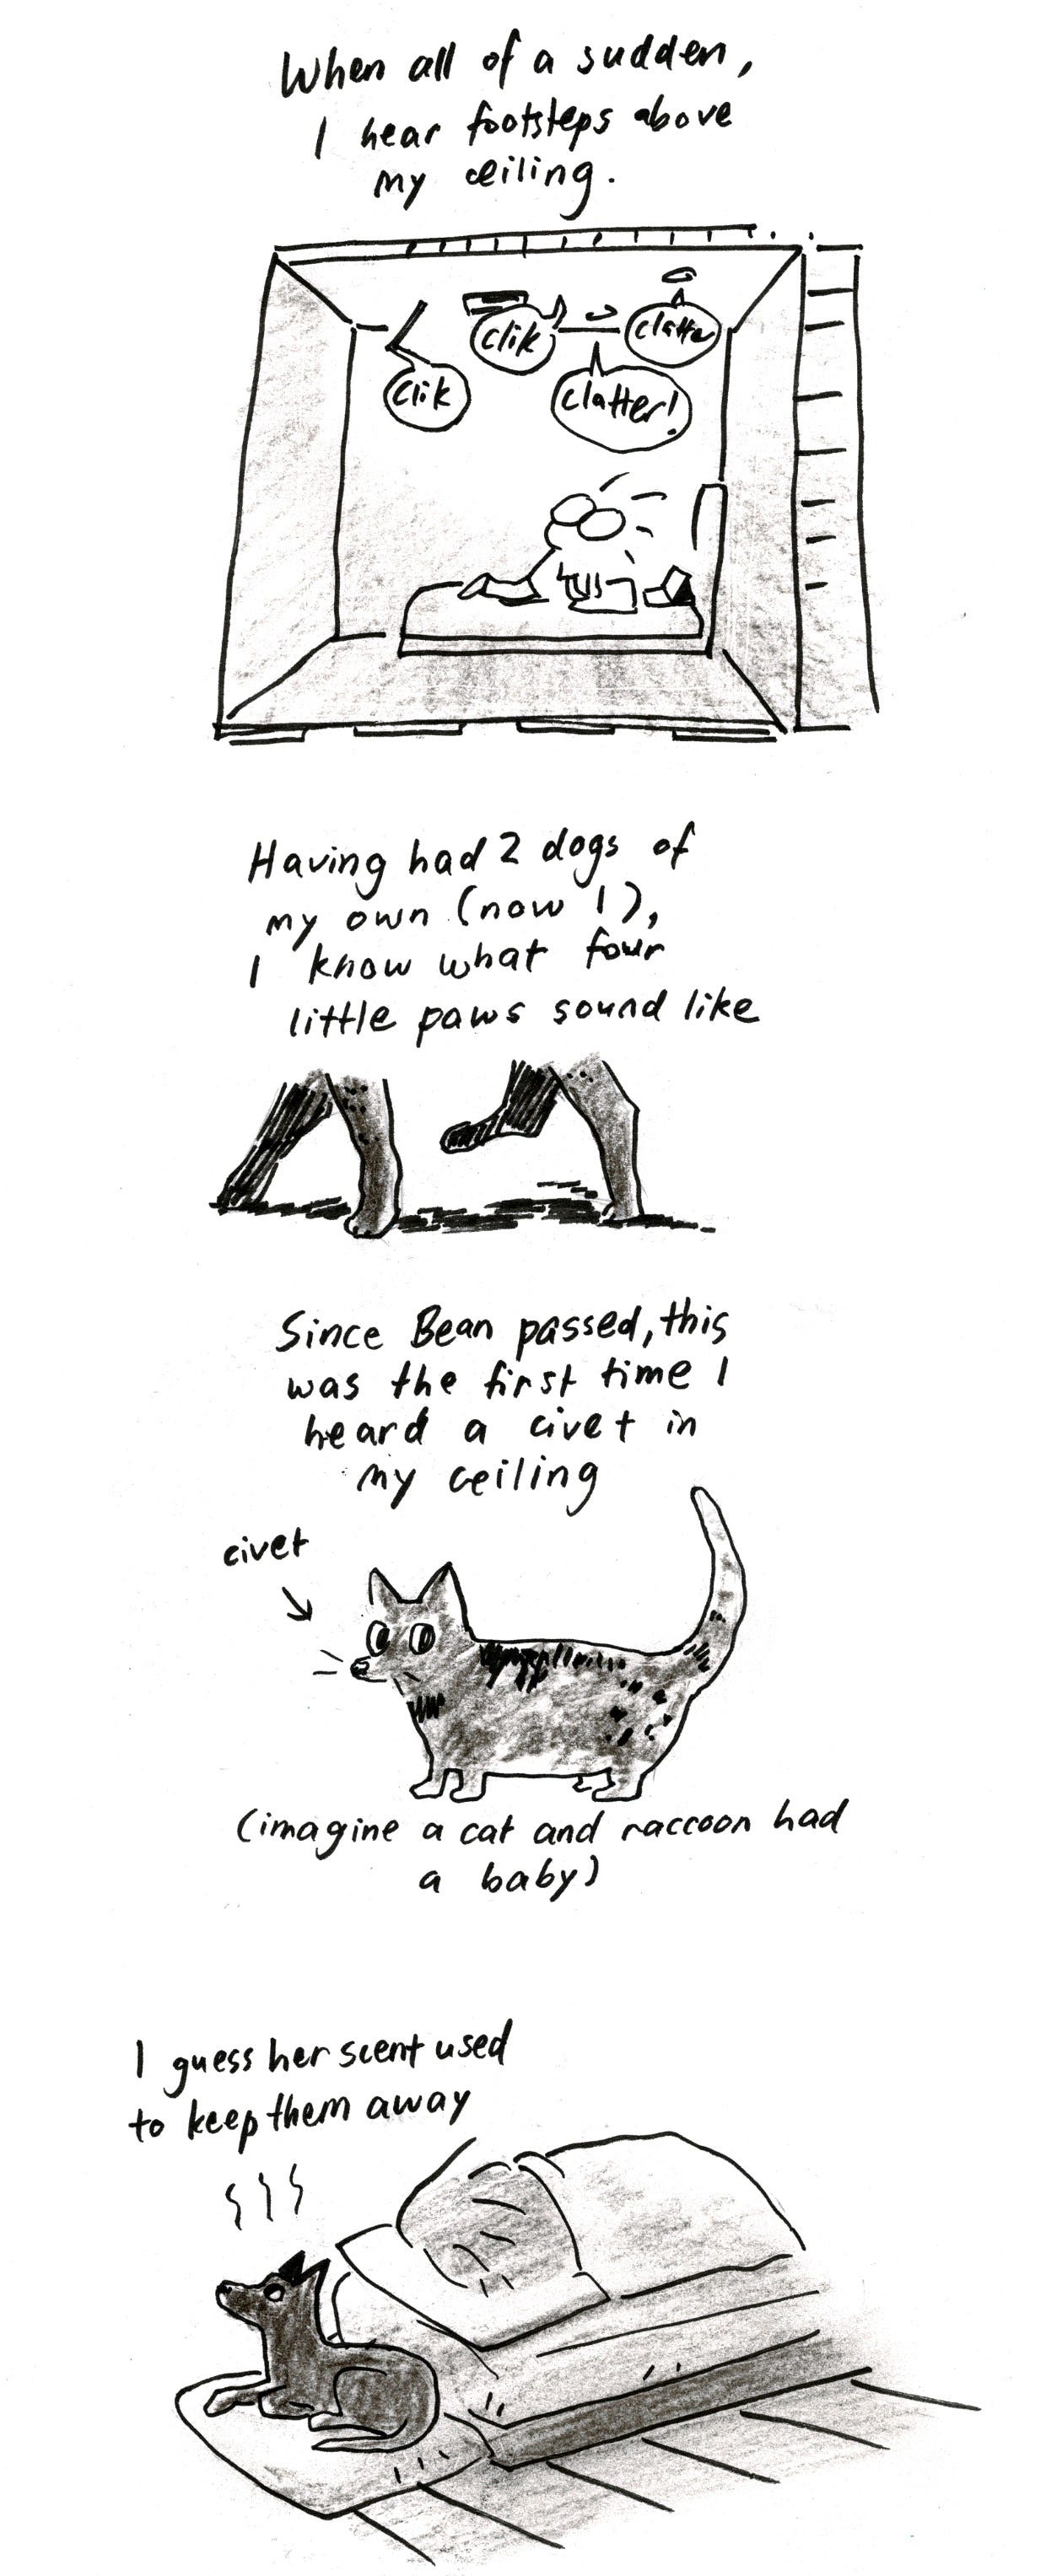 When all of a sudden,
I hear footsteps above
my ceiling.
clik
clik
clatter
clatter!
Having had 2 dogs of
my own (now 1),
I know what four
little paws sound like
Since Bean passed, this
was the first time I
heard a civet in
my ceiling
civet
(imagine a cat and raccoon had
a baby)
I guess her scent used
to keep them away